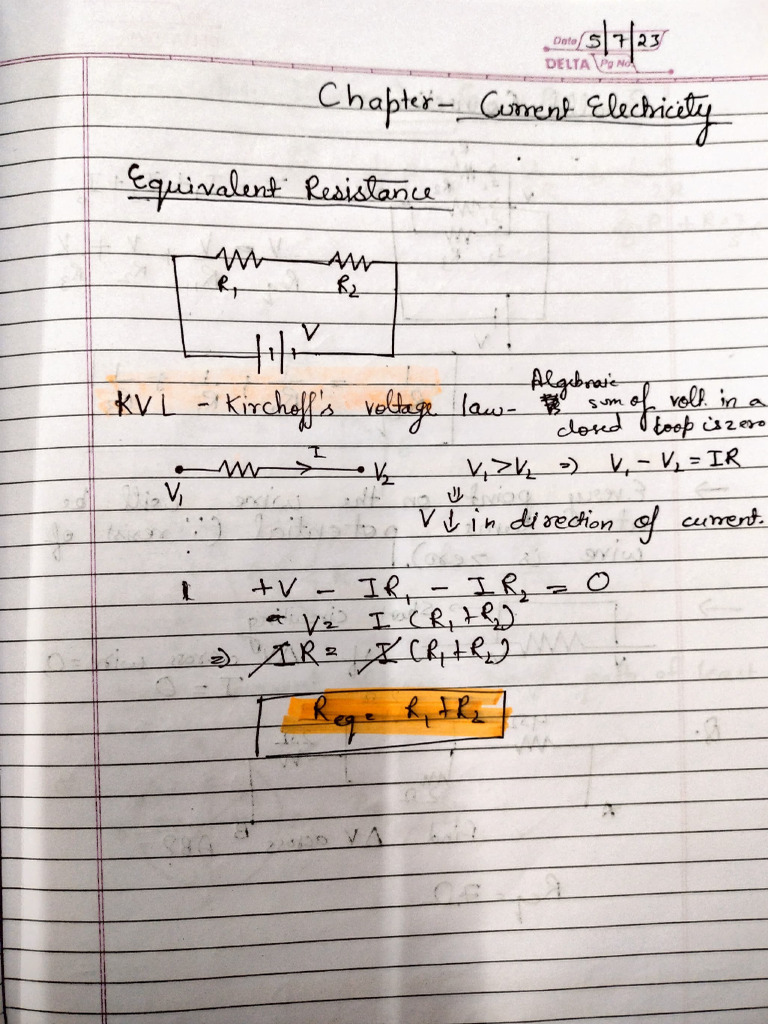 Date 5/7/23
DELTA Pg No.
Chapter - Current Electricity
Equivalent Resistance
R₁ R₂
V
KVL - Kirchoff's voltage law - Algebraic sum of volt. in a closed loop is zero
I
V₁ V₂ V₁ > V₂ ⇒ V₁ - V₂ = IR
⇓
V ↓ in direction of current.
+V - IR₁ - IR₂ = 0
V = I (R₁ + R₂)
⇒ IR = I (R₁ + R₂)
Req = R₁ + R₂